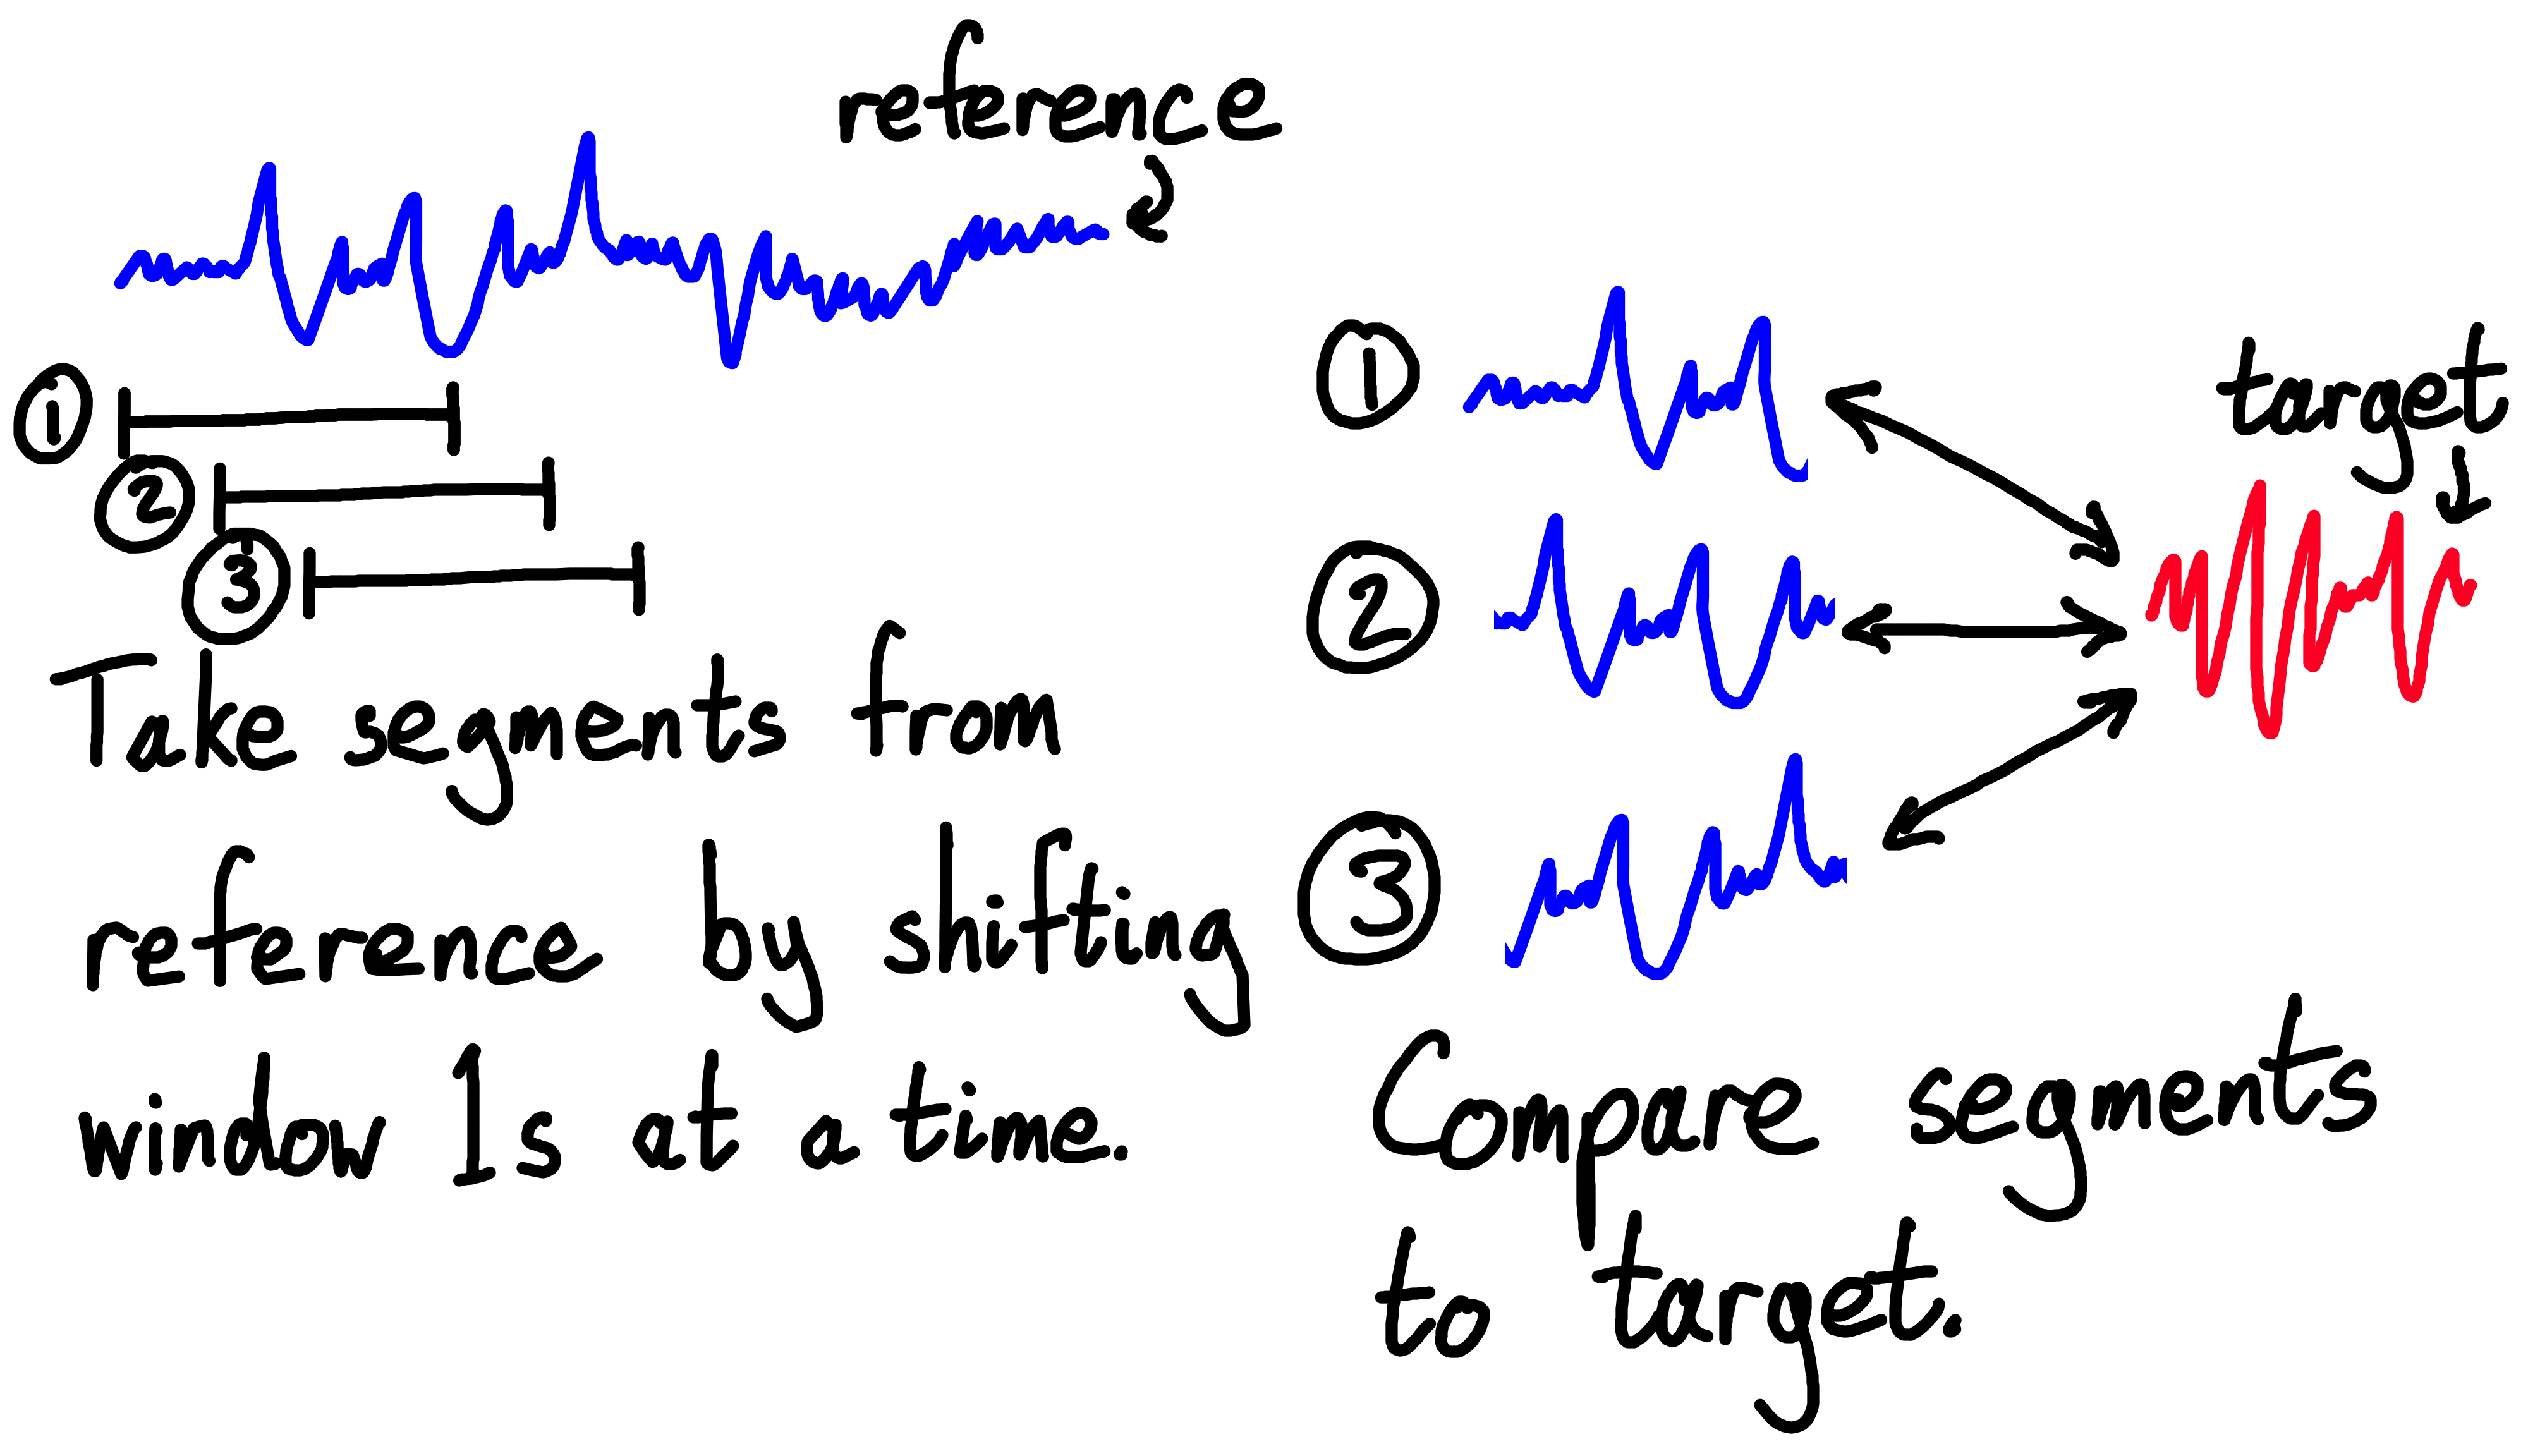 reference
①
②
③
Take segments from
reference by shifting
window 1s at a time.
①
②
③
target
Compare segments
to target.